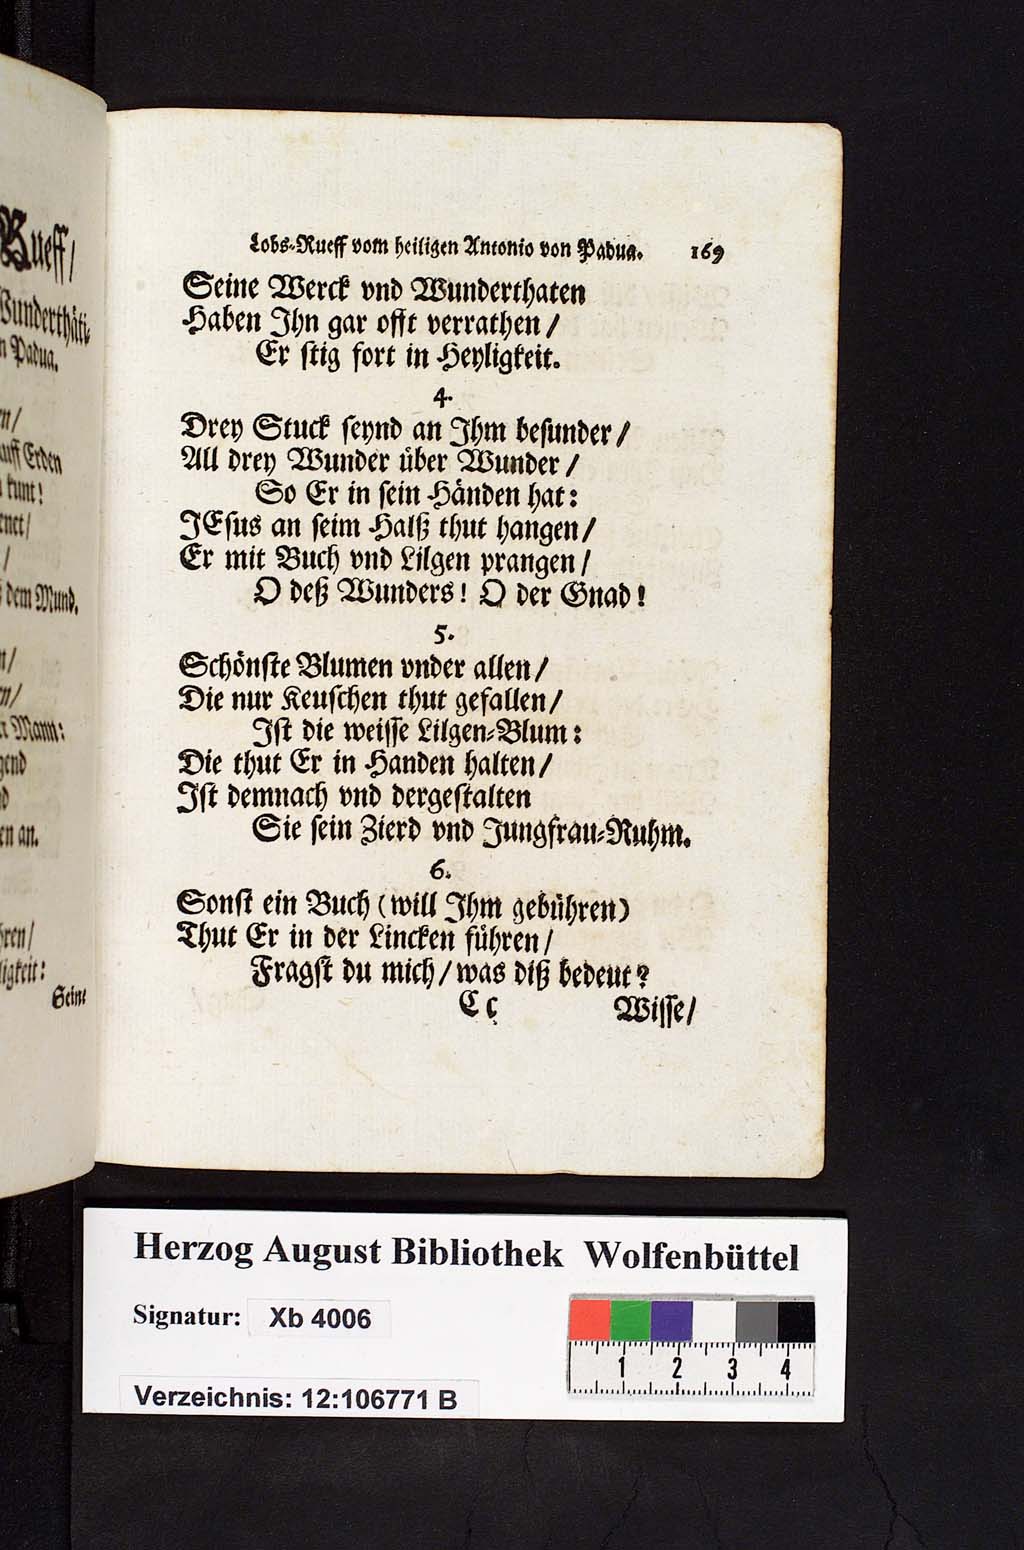 Rueff/
Wunderthäti-
n Padua.
en/
auff Erden
kunt!
enet/
/
dem Mund.
n/
en/
Mann:
gend
d
en an.
hren/
ligkeit:
Seine
Lobs-Rueff vom heiligen Antonio von Padua. 169
Seine Werck vnd Wunderthaten
Haben Ihn gar offt verrathen/
Er stig fort in Heyligkeit.
4.
Drey Stuck seynd an Ihm besunder/
All drey Wunder über Wunder/
So Er in sein Händen hat:
JEsus an seim Halß thut hangen/
Er mit Buch vnd Lilgen prangen/
O deß Wunders! O der Gnad!
5.
Schönste Blumen vnder allen/
Die nur Keuschen thut gefallen/
Ist die weisse Lilgen-Blum:
Die thut Er in Handen halten/
Ist demnach vnd dergestalten
Sie sein Zierd vnd Jungfrau-Ruhm.
6.
Sonst ein Buch (will Ihm gebühren)
Thut Er in der Lincken führen/
Fragst du mich/ was diß bedeut?
C c Wisse/
Herzog August Bibliothek Wolfenbüttel
Signatur: Xb 4006
1 2 3 4
Verzeichnis: 12:106771 B